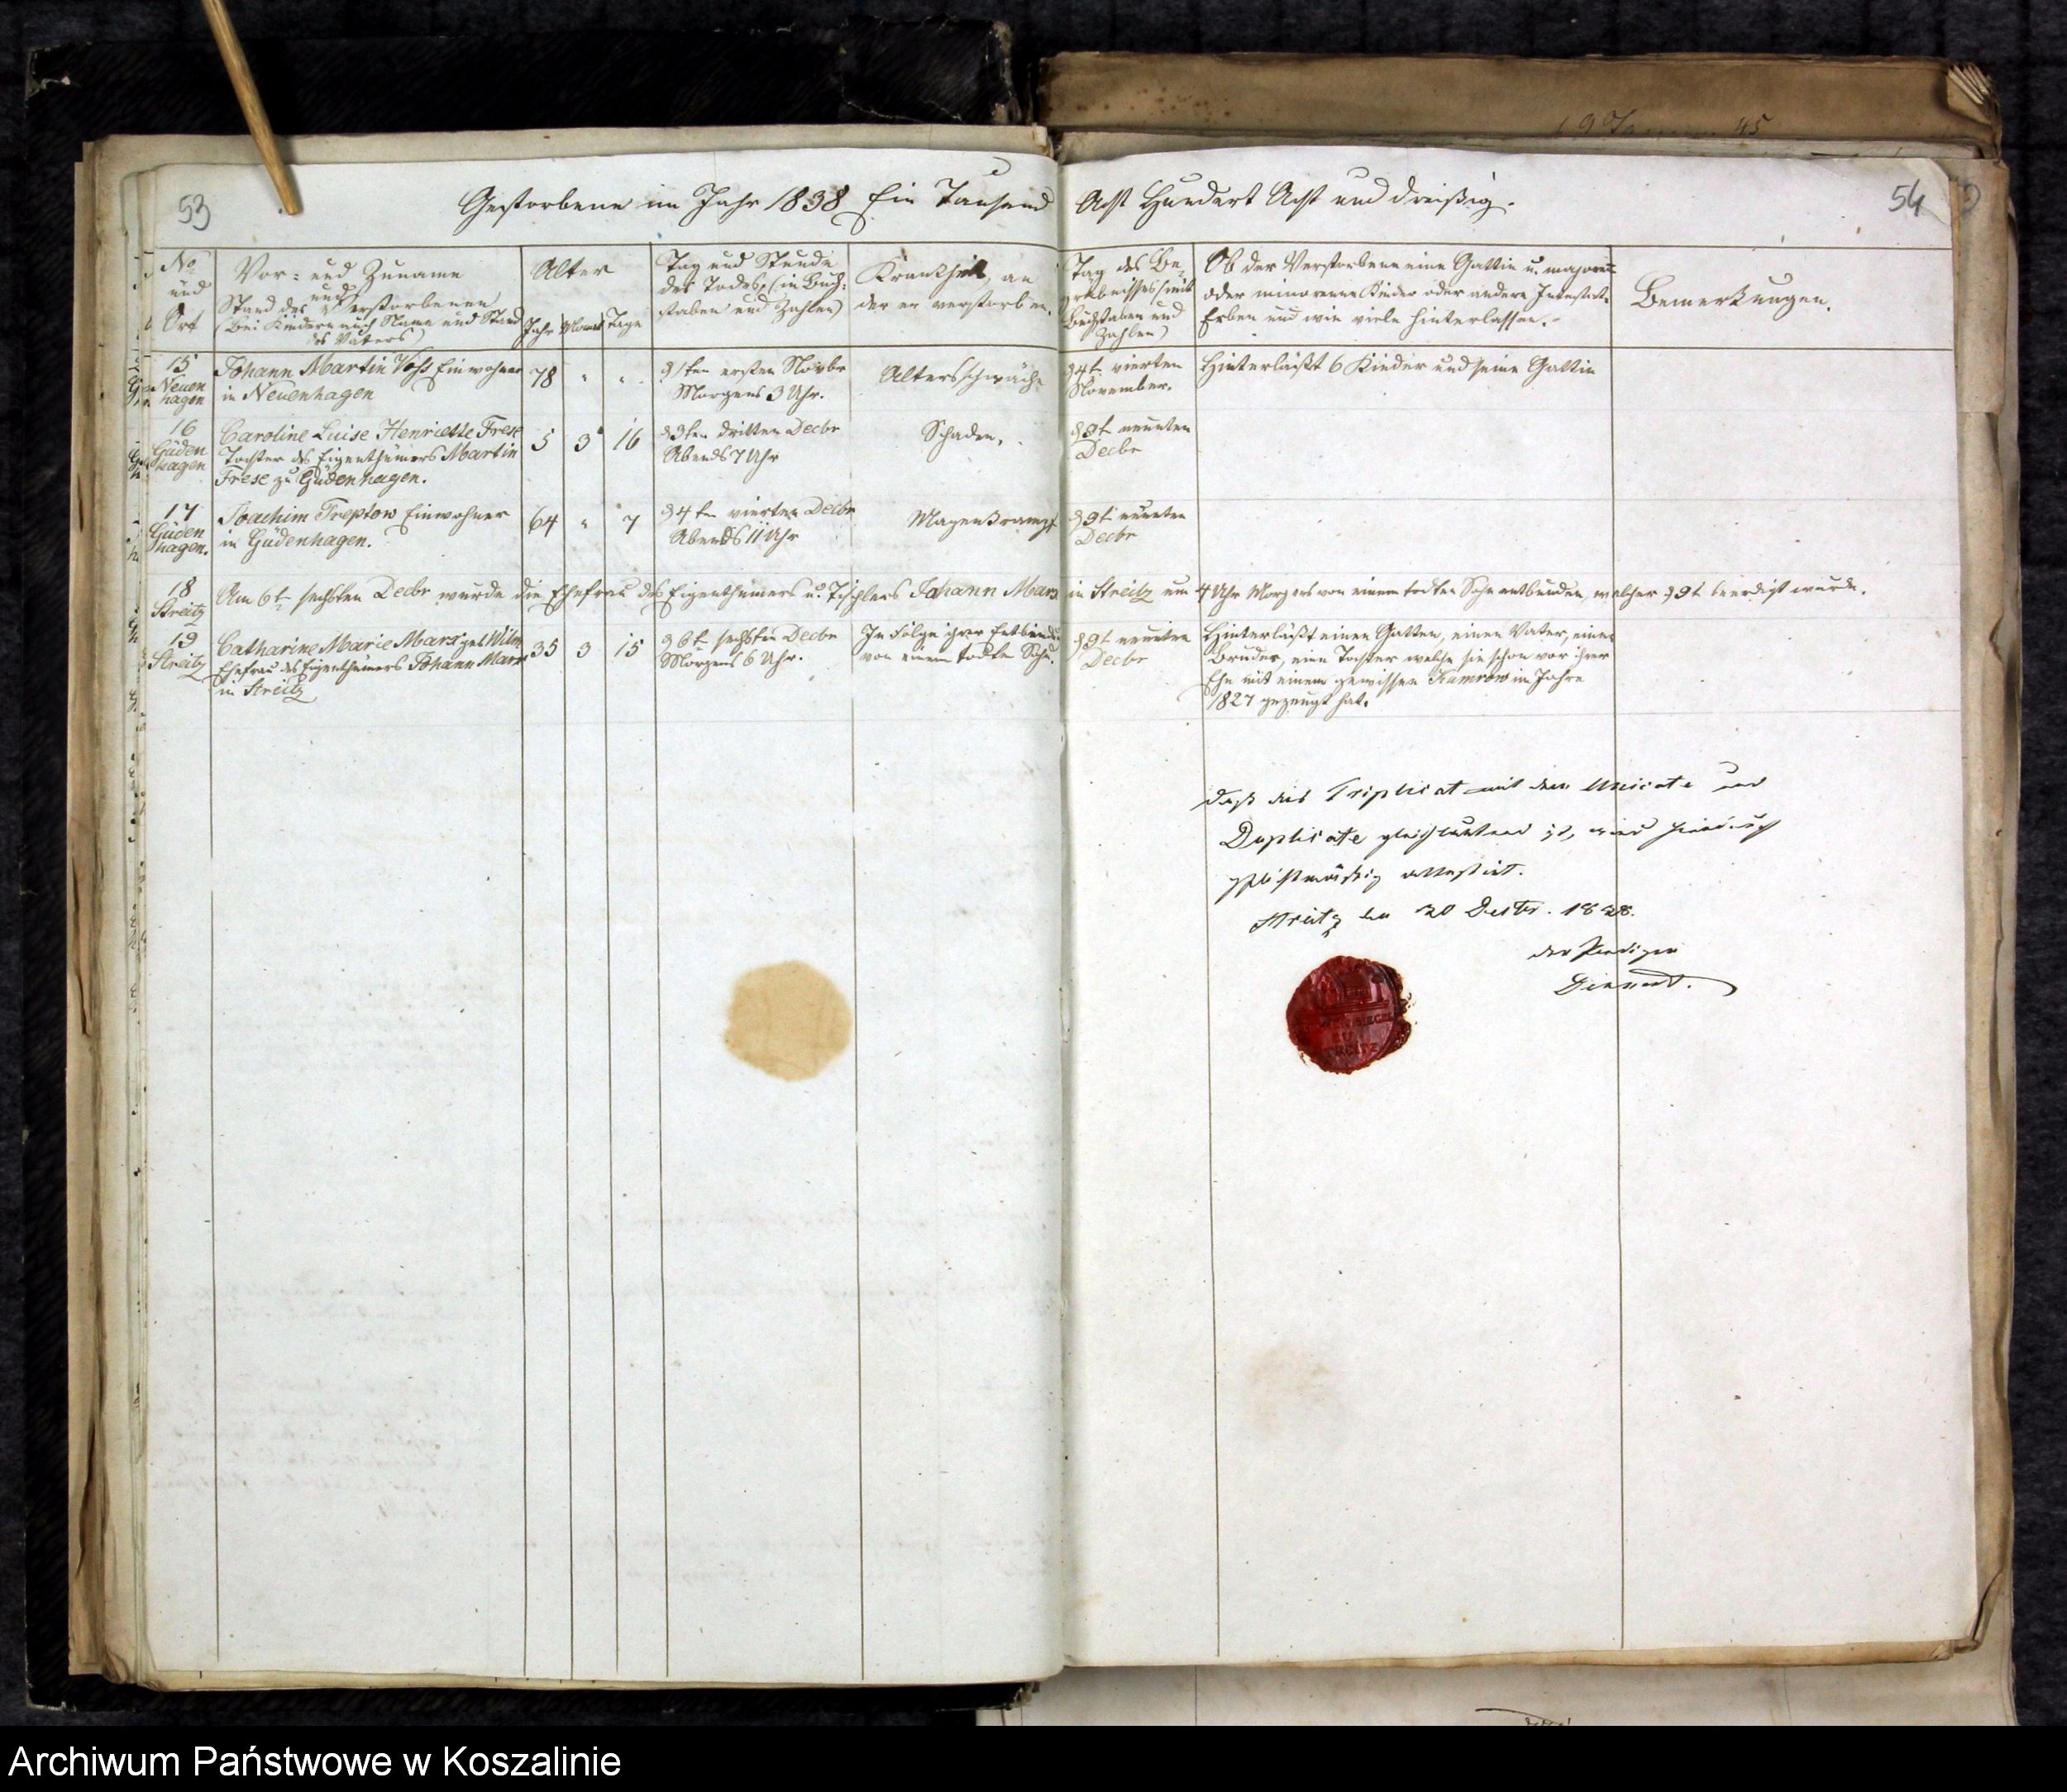 53
Gestorbene im Jahr 1838 Ein Tausend Acht Hundert Acht und dreißig.
54
No
und
Ort
Vor- und Zuname
und
Stand des Verstorbenen
(Bei Kindern auch Name und Stand
des Vaters)
Alter
Jahr Monat Tage
Tag und Stunde
des Todes, (in Buch-
staben und Zahlen)
Krankheit, an
der er verstorben.
Tag des Be-
gräbnisses (mit
Buchstaben und
Zahlen)
Ob der Verstorbene eine Gattin u. majorenne
oder minorenne Kinder oder andere Intestat-
Erben und wie viele hinterlassen.
Bemerkungen.
15
Neuen
hagen
Johann Martin Voss Einwohner
in Neuenhagen
78 " "
d 1ten ersten Novbr
Morgens 3 Uhr.
Altersschwäche
d 4t vierten
November.
Hinterläßt 6 Kinder und seine Gattin
16
Güden
hagen
Caroline Luise Henriette Frese
Tochter des Eigenthümers Martin
Frese zu Güdenhagen.
5 3 16
d 3ten dritten Decbr
Abends 7 Uhr
Schaden.
d 9t neunten
Decbr
17
Güden
hagen.
Joachim Treptow Einwohner
in Güdenhagen.
64 " 7
d 4ten vierten Decbr
Abends 11 Uhr
Magenkrampf
d 9t neunten
Decbr
18
Streitz
Am 6t sechsten Decbr wurde die Ehefrau des Eigenthümers u. Tischlers Johann Marx in Streitz um 4 Uhr Morgens von einem todten Sohn entbunden, welcher d 9t beerdigt wurde.
19
Streitz
Catharine Marie Marx geb Wilm
Ehefrau des Eigenthümers Johann Marx
in Streitz
35 3 15
d 6t sechsten Decbr
Morgens 6 Uhr.
In Folge ihrer Entbindung
von einem todten Sohn.
d 9t neunten
Decbr
Hinterläßt einen Gatten, einen Vater, einen
Bruder, eine Tochter welche sie schon vor ihrer
Ehe mit einem gewissen Kamrow im Jahre
1827 gezeugt hat.
Daß das Triplicat mit dem Unicate und
Duplicate gleichlautend ist, wird hierdurch
pflichtmäßig attestirt.
Streitz den 30 Decbr. 1838.
der Prediger
Archiwum Państwowe w Koszalinie